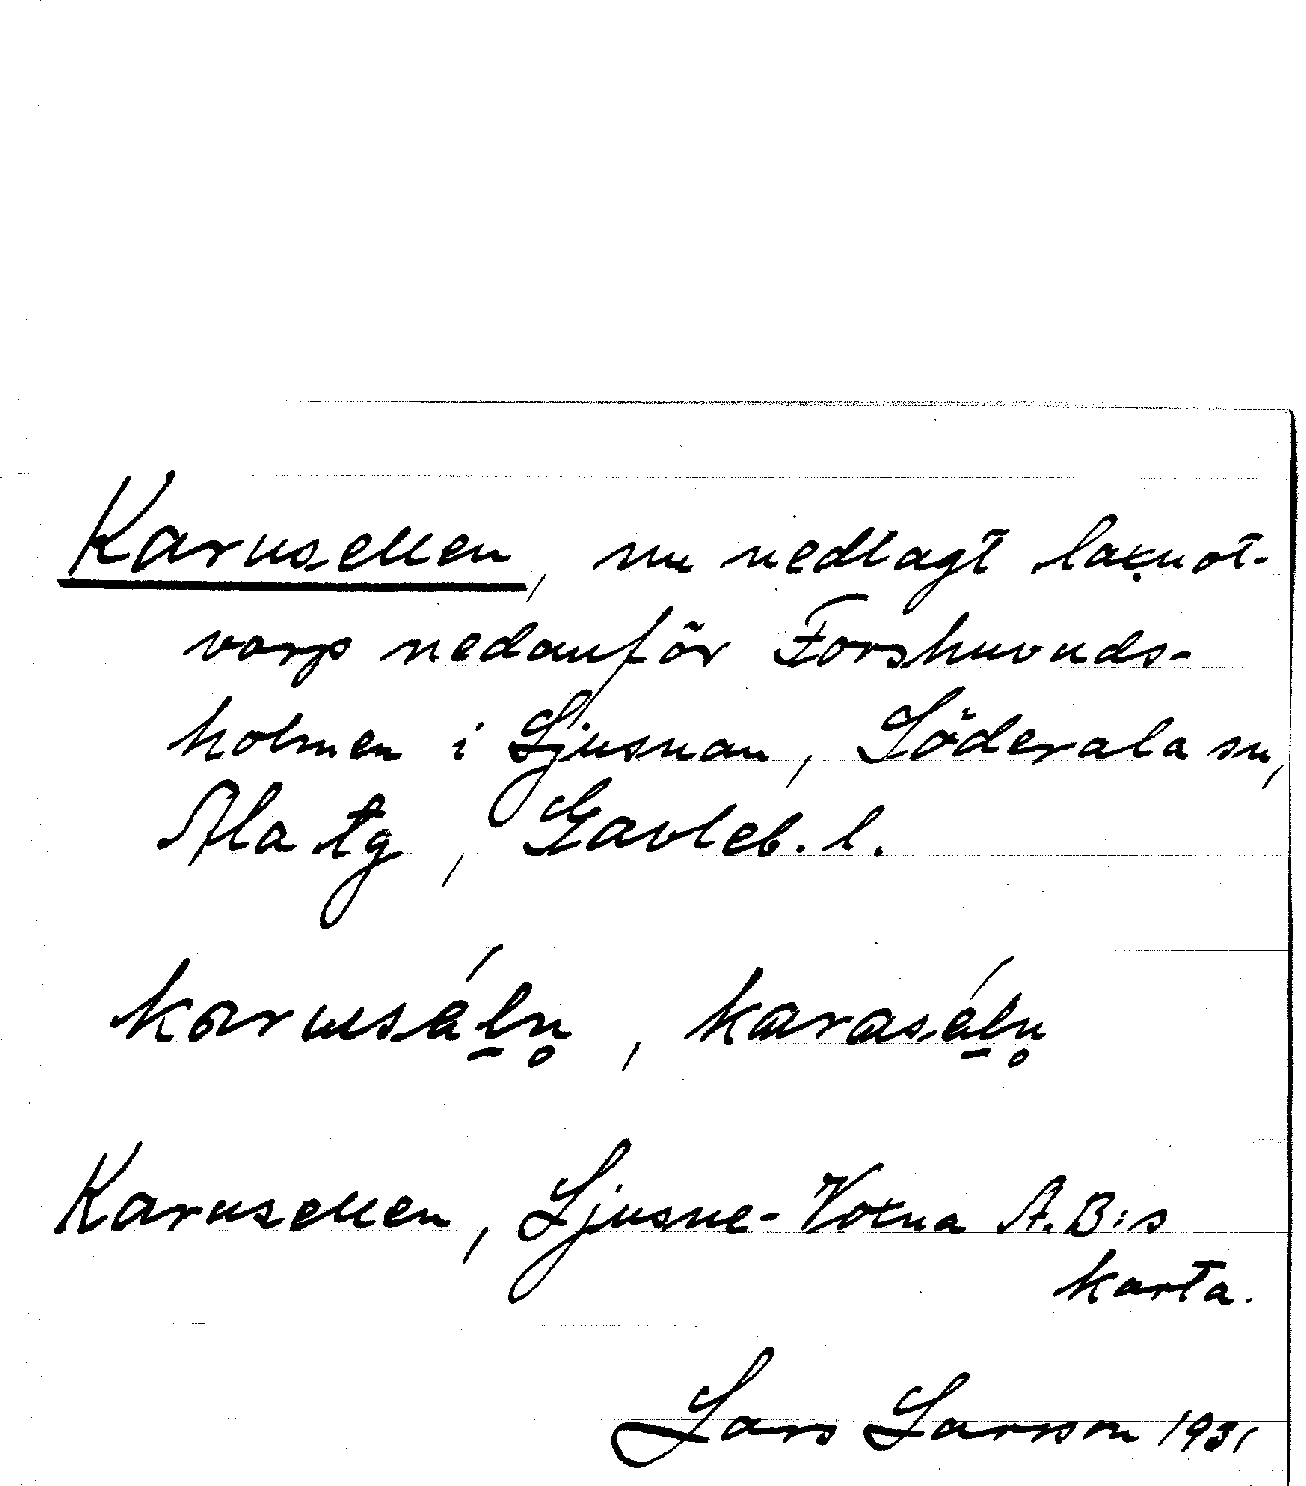 Karusellen, nu nedlagt laxnot-
varp nedanför Forshuvuds-
holmen i Ljusnan, Söderala sn,
Ala tg, Gävleb. l.
karusáln̥, karasáln̥
Karusellen, Ljusne-Voxna A.B:s
karta.
Lars Larsson 1931